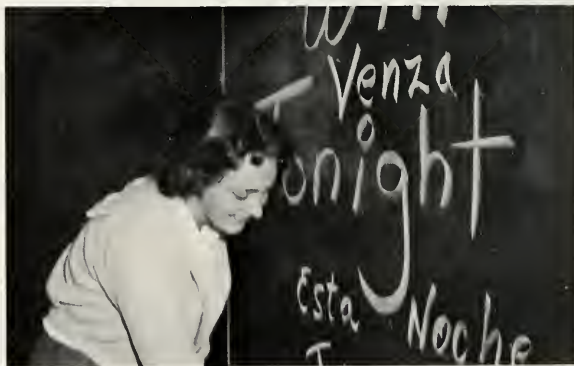 Win
Venza
Tonight
Esta Noche